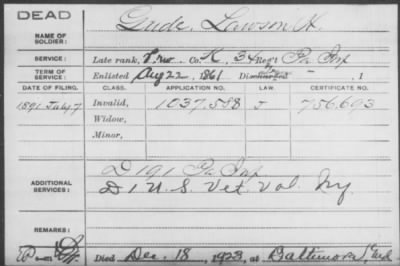 DEAD
NAME OF SOLDIER: Gude, Lawson H.
SERVICE: Late rank, Co. K, 34 Reg't Pa Inf
TERM OF SERVICE: Enlisted Aug 22, 1861 Discharged - , 1
DATE OF FILING. CLASS. APPLICATION NO. LAW. CERTIFICATE NO.
1891 July 7 Invalid, 1037,558 J 756,693
Widow,
Minor,
ADDITIONAL SERVICES: D 191 Pa Inf.
D 1 U.S. Vet. Vol. Inf
REMARKS:
Died Dec. 18, 1923, at Baltimore, Md